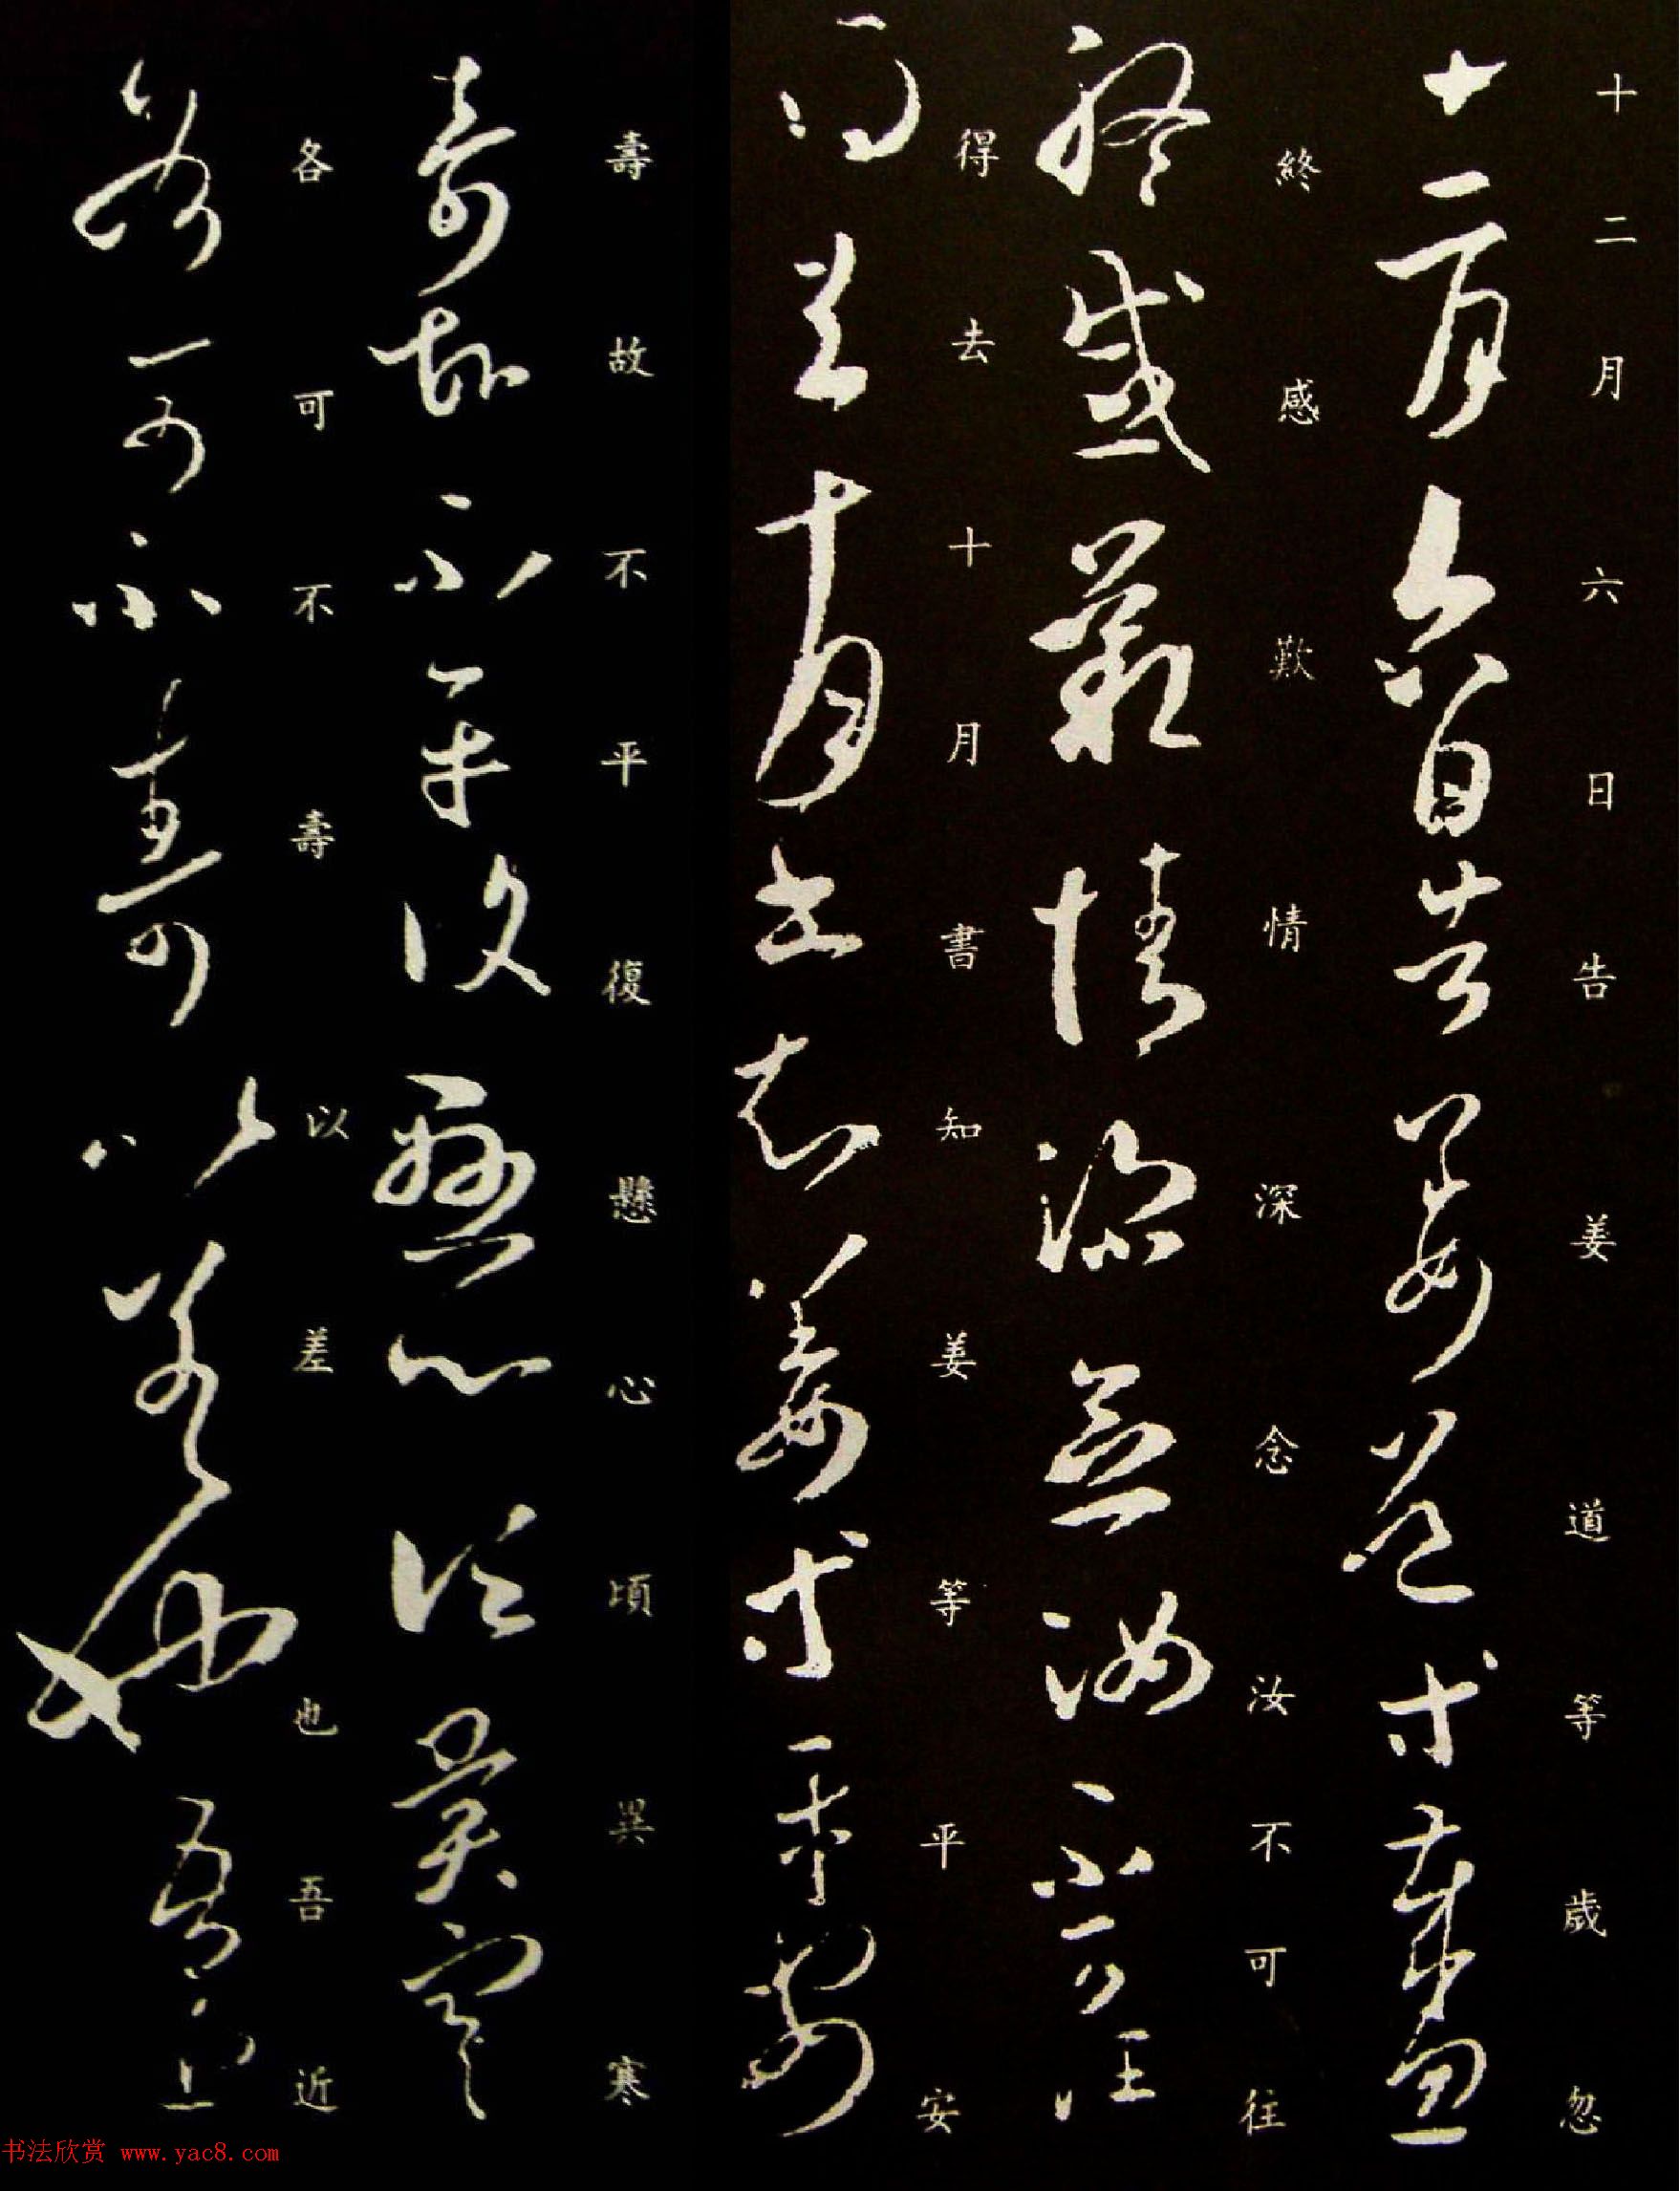 十二月六日告姜道等歲忽
終感歎情深念汝不可往
得去十月書知姜等平安
壽故不平復懸心頃異寒
各可不壽以差也吾近
书法欣赏 www.yac8.com